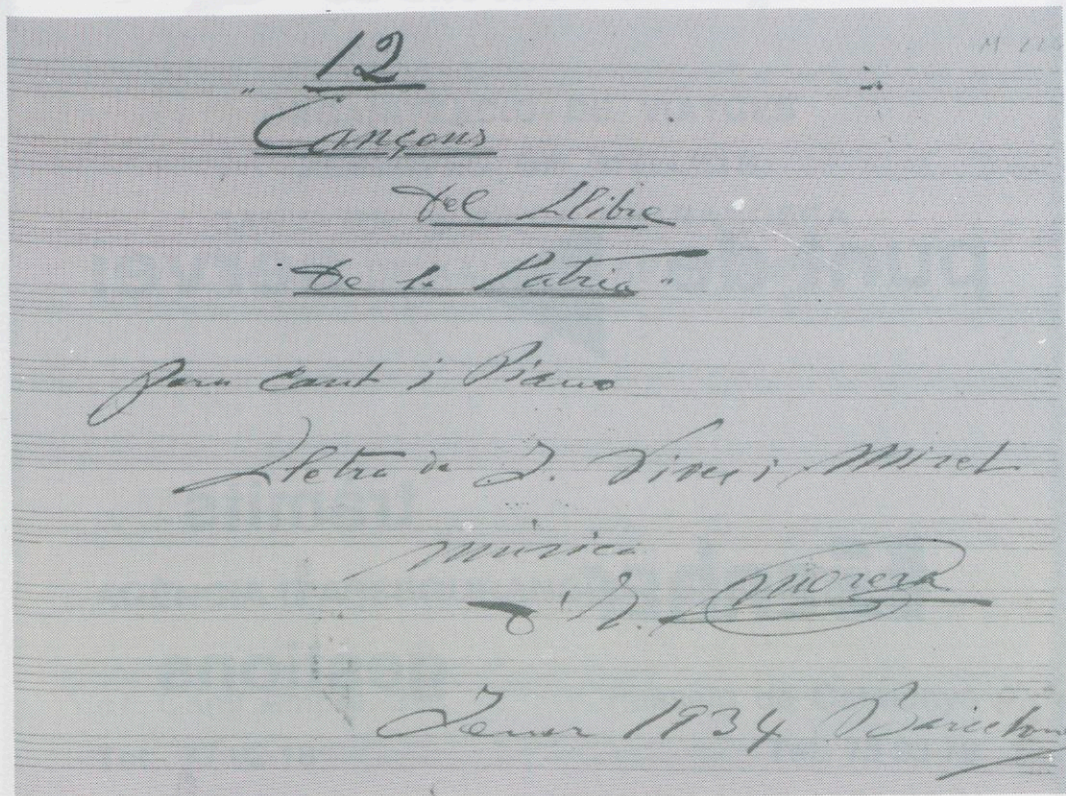 12
"Cançons
del Llibre
de la Patria"
para cant i Piano
Lletra de J. Vives i Miret
música
d'E. Morera
Janer 1934 Barcelona